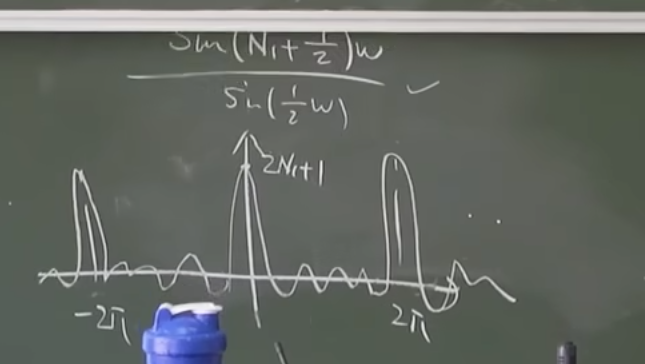 Sin(N₁+½)w
Sin(½w)
2N₁+1
-2π
2π